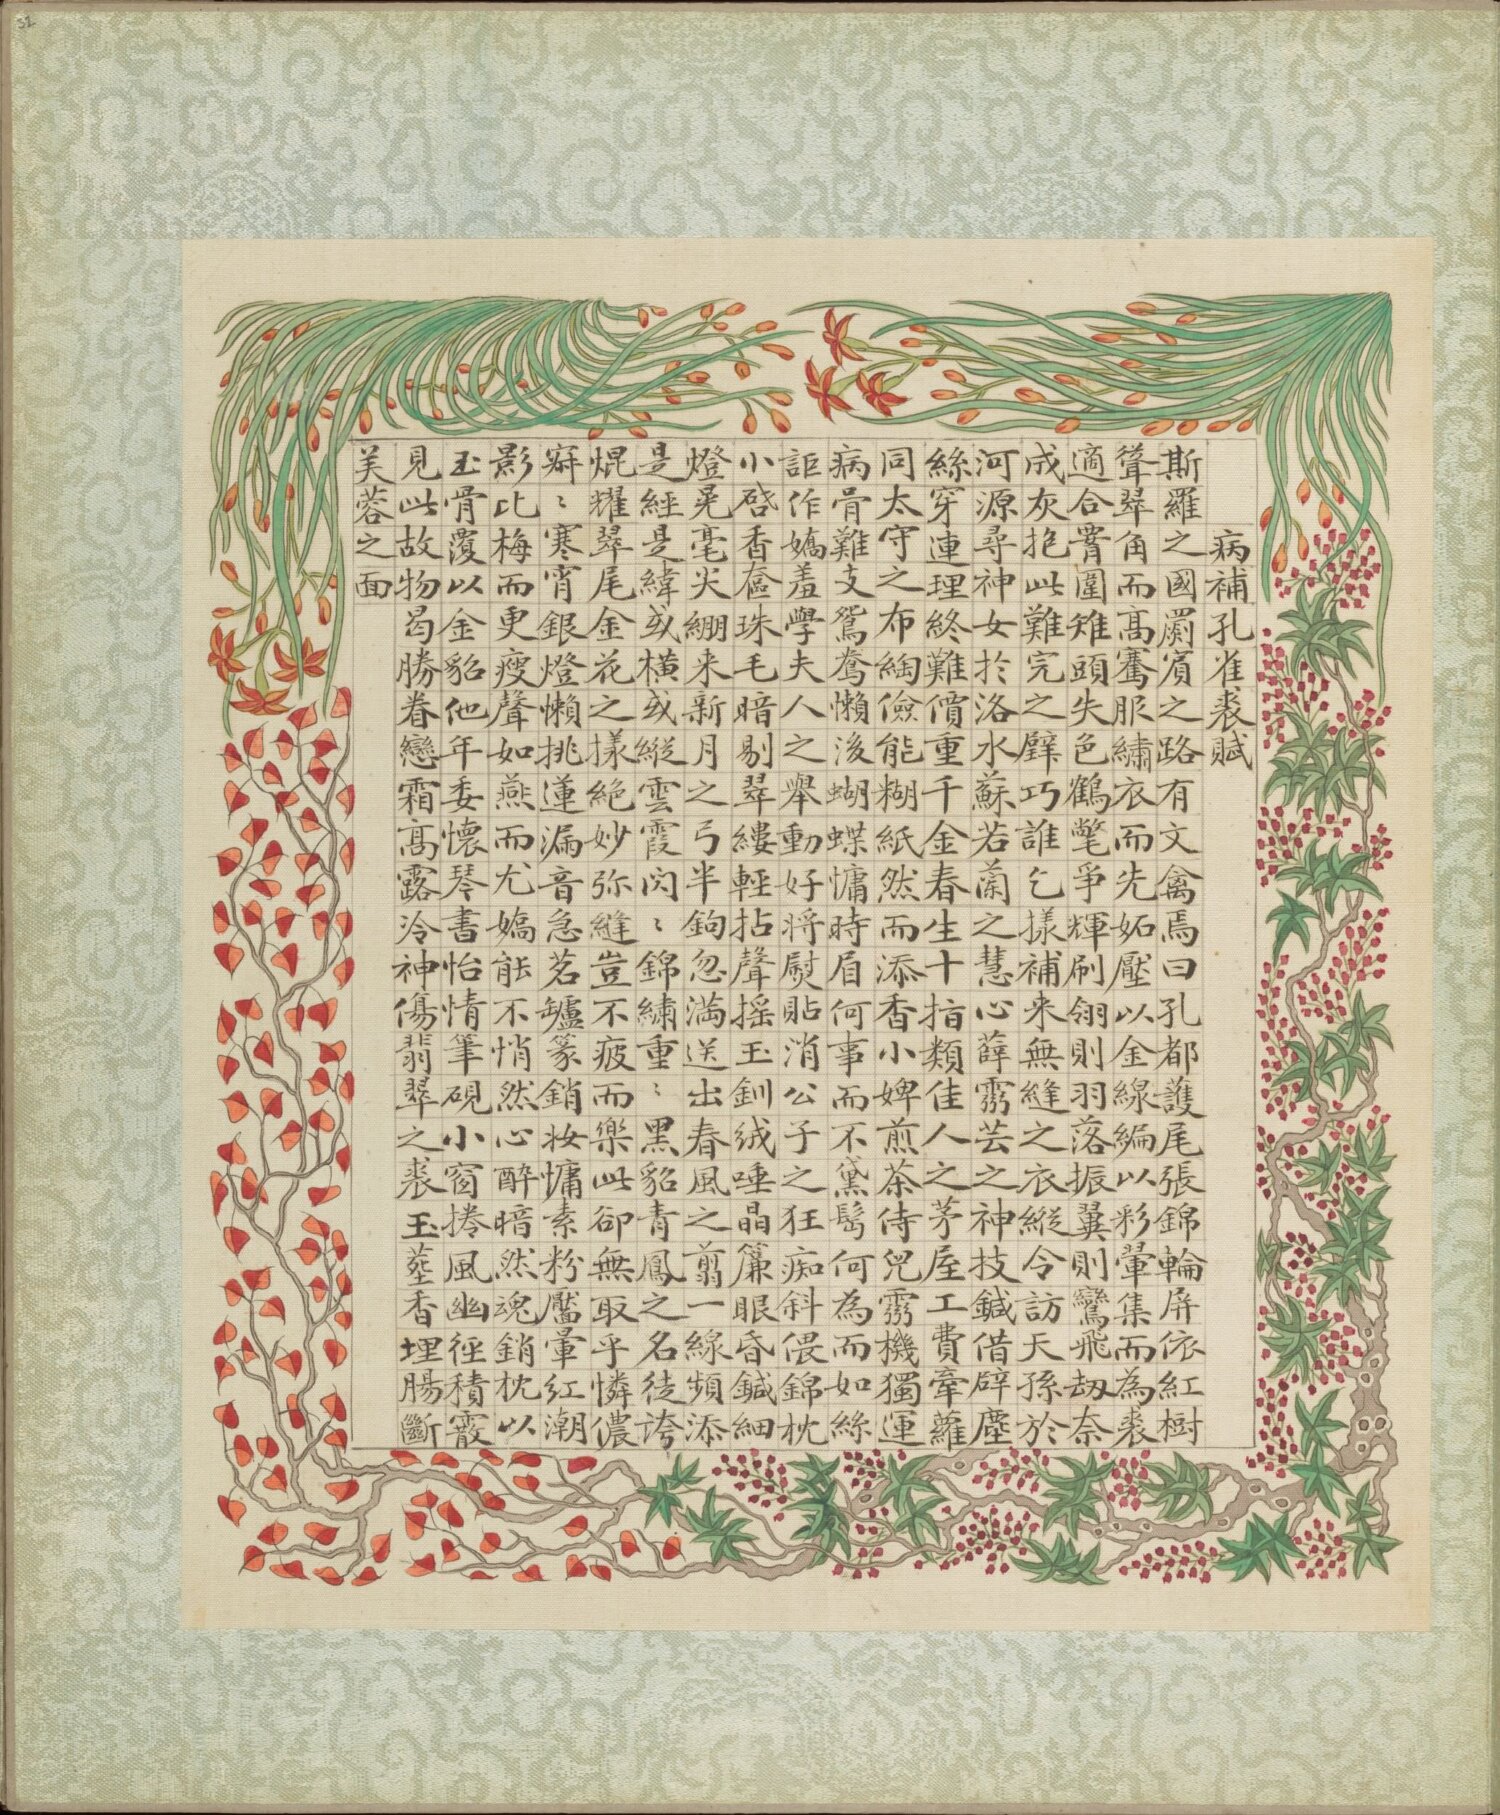 病補孔雀裘賦
斯羅之國罽賓之路有文禽焉曰孔都護尾張錦輪屏依紅樹
聳翠角而高騫服繡衣而先妬壓以金線編以彩翬集而為裘
適合霄圍雉頭失色鶴氅爭輝刷翎則羽落振翼則鸞飛刼奈
成灰抱此難完之璧巧誰乞樣補来無縫之衣縱令訪天孫於
河源尋神女於洛水蘇若蘭之慧心薛靈芸之神技鍼借辟塵
絲穿連理終難價重千金春生十指類佳人之茅屋工費牽蘿
同太守之布綯儉能糊紙然而添香小婢煎茶侍兒靈機獨運
病骨難支鴛鴦懶後蝴蝶慵時眉何事而不黛髩何為而如絲
詎作嬌羞學夫人之舉動好將熨貼消公子之狂痴斜偎錦枕
小啟香奩珠毛暗剔翠縷輕拈聲摇玉釧絨唾晶簾眼昏鍼細
燈晃毫尖綳来新月之弓半鉤忽滿送出春風之剪一線頻添
是經是緯或橫或縱雲霞閃〻錦繡重〻黑貂青鳳之名徒誇
焜耀翠尾金花之樣絶妙弥縫豈不疲而樂此卻無取乎憐儂
辭〻寒宵銀燈懶挑蓮漏音急茗爐篆銷妝慵素粉靨暈紅潮
影比梅而更瘦聲如燕而尤嬌能不悄然心醉暗然魂銷枕以
玉骨覆以金貂他年委懷琴書怡情筆硯小窗捲風幽徑積霰
見此故物曷勝眷戀霜高露冷神傷翡翠之裘玉塟香埋腸斷
芙蓉之面
32